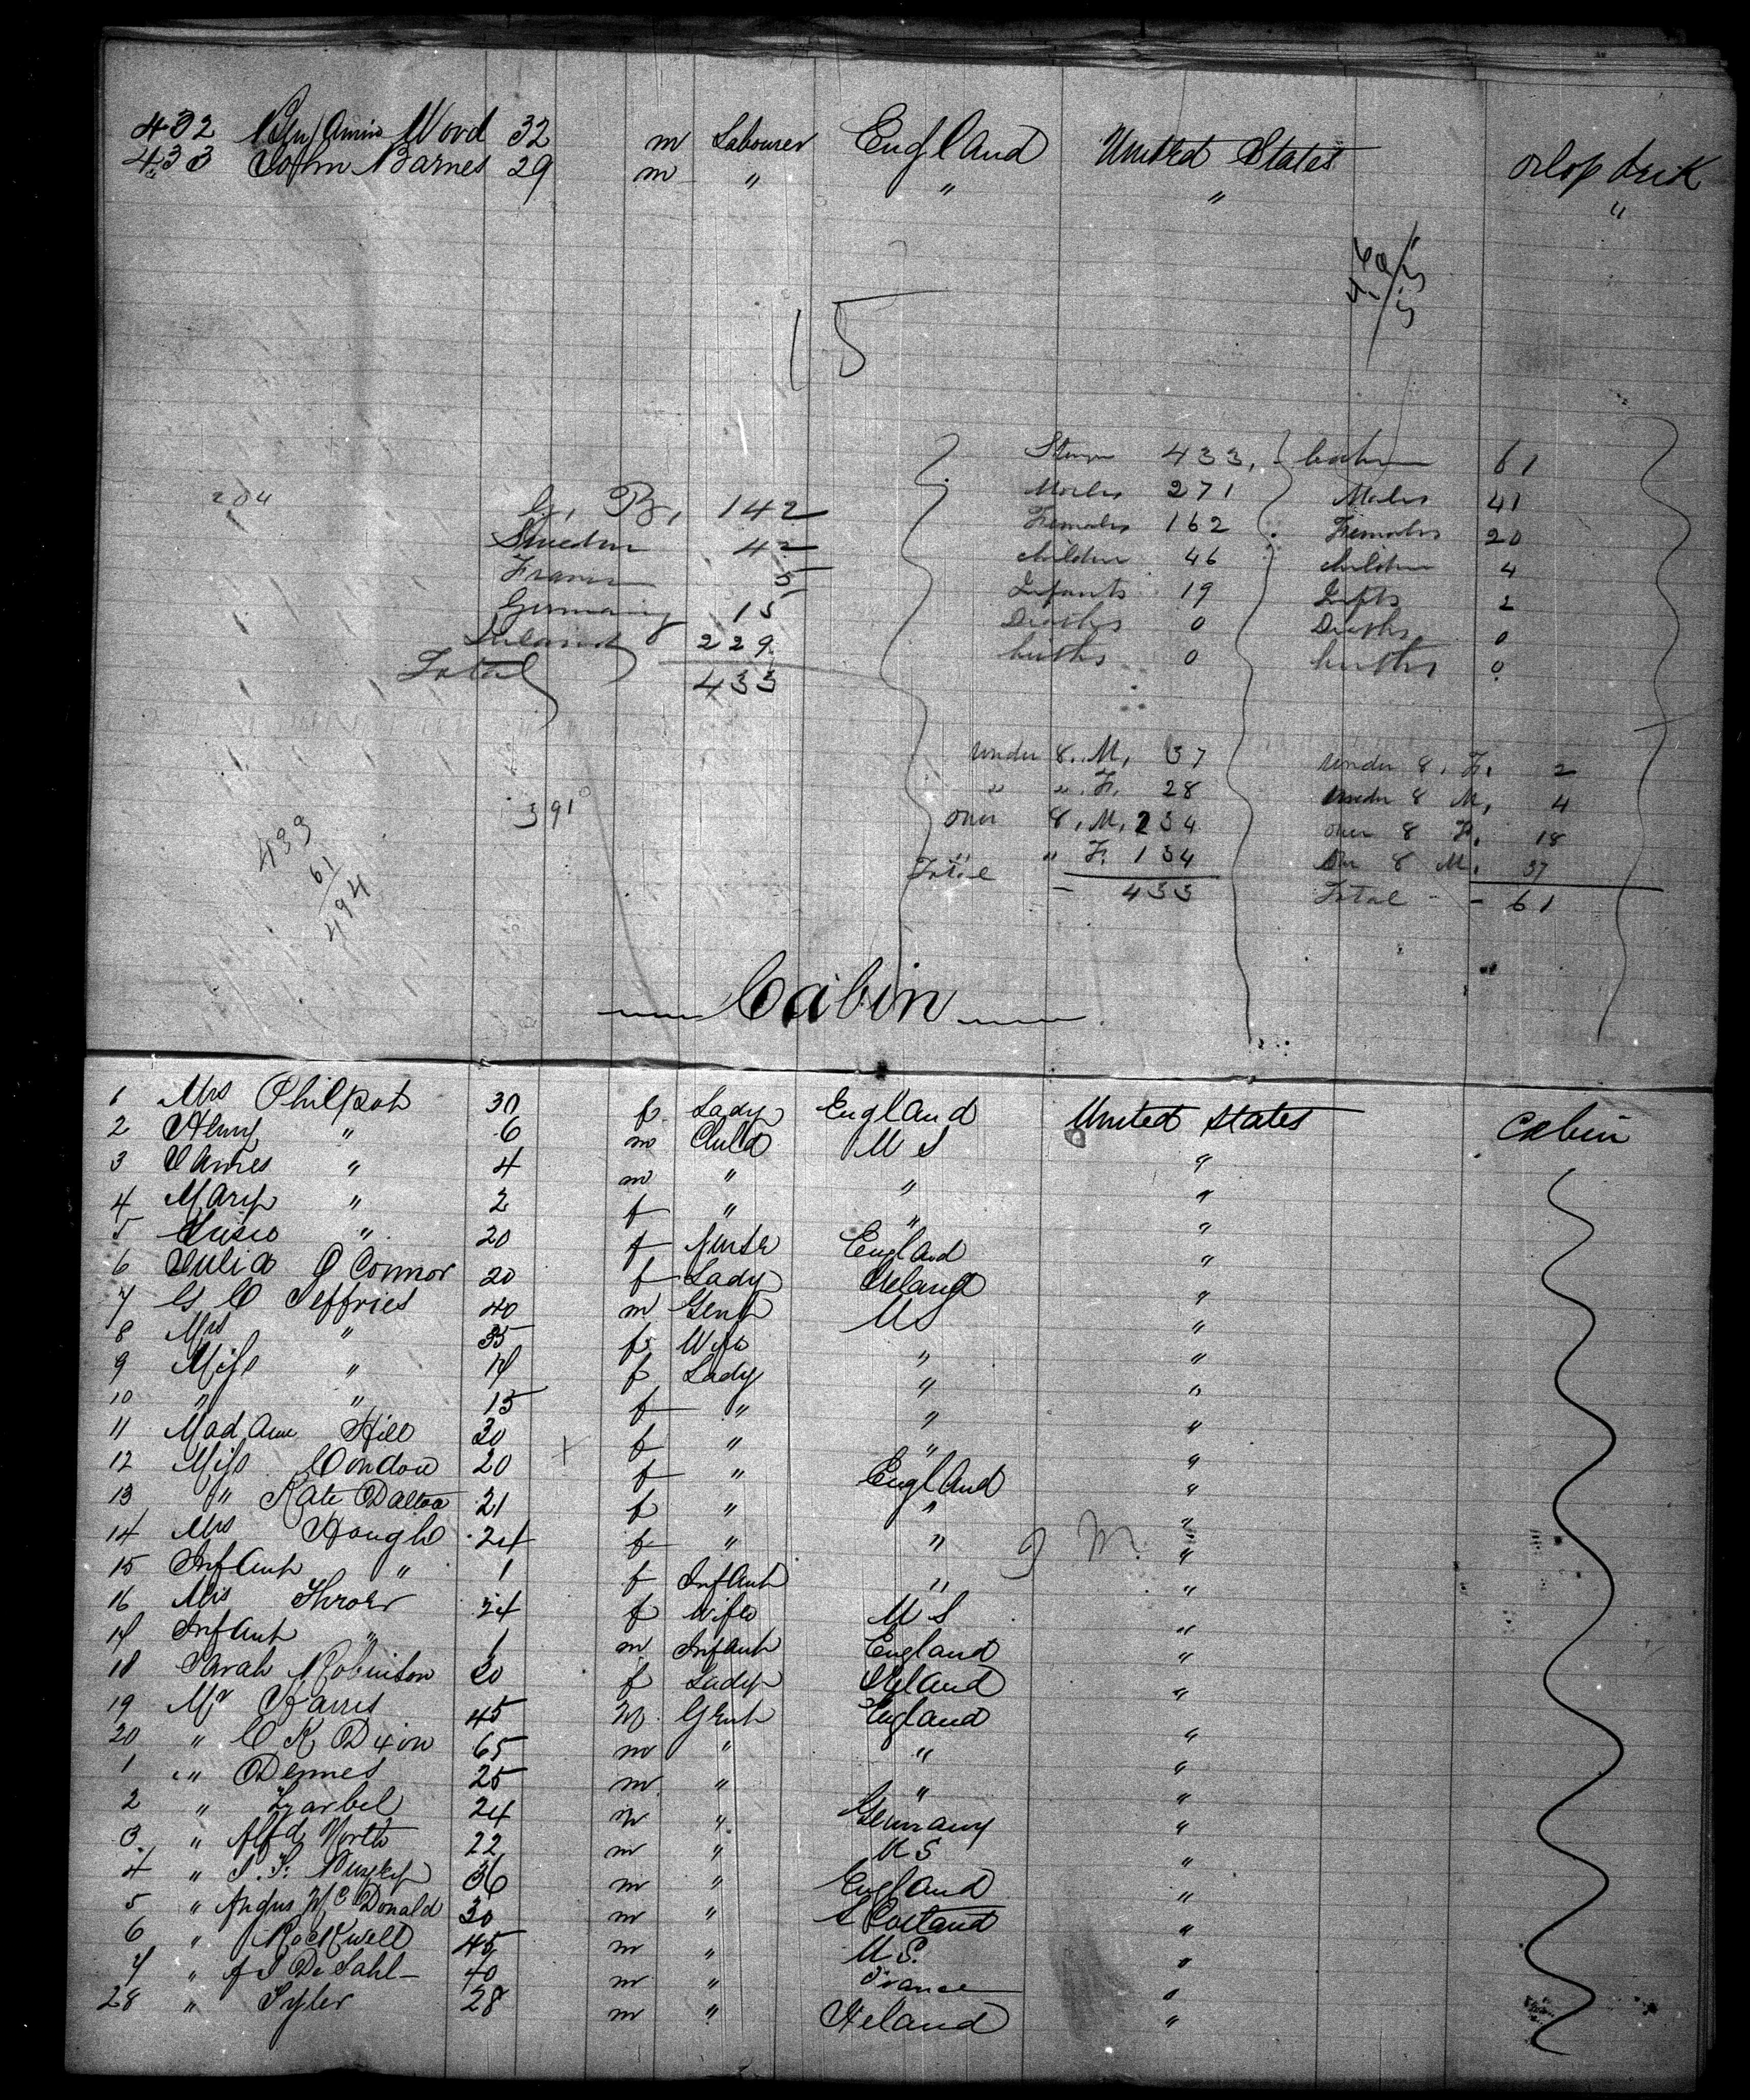 432 Benjamin Wood 32 m Labourer England United States Orlop deck
433 John Barnes 29 m " " " "
15
Steerage 433 Cabin 61
Males 271 Males 41
Females 162 Females 20
Children 46 Children 4
Infants 19 Infts 2
Deaths 0 Deaths 0
births 0 births 0
204
G. B. 142
Sweden 42
France 5
Germany 15
Ireland 229
Total 433
under 8. M. 37 under 8. F. 2
" ". F. 28 under 8 M. 4
over 8. M. 234 over 8 F. 18
" " F. 134 Over 8 M. 37
Total - 433 Total - 61
391
433
61
494
Cabin
1 Mrs Philpot 30 f Lady England United States Cabin
2 Henry " 6 m Child U S "
3 James " 4 m " " "
4 Mary " 2 f " " "
5 Susie " 20 f Nurse England "
6 Julia O Connor 20 f Lady Ireland "
7 G C Jeffries 40 m Gent U S "
8 Mrs " 35 f Wife " "
9 Miss " 17 f Lady " "
10 " " 15 f " " "
11 Madame Hill 30 f " " "
12 Miss Condon 20 f " England "
13 " Kate Dalton 21 f " " "
14 Mrs Hough 24 f " " "
15 Infant " 1 f Infant " "
16 Mrs Throer 24 f Wife U S "
17 Infant " 1 m Infant England "
18 Sarah Robinson 20 f Lady Ireland "
19 Mr Harris 45 m Gent England "
20 " C K Dixon 65 m " " "
1 " Dennes 25 m " " "
2 " Zarbel 24 m " Germany "
3 " Alfd North 22 m " U S "
4 " 36 m " England "
5 " Angus Mc Donald 30 m " Scotland "
6 " Rockwell 45 m " U. S. "
7 " A J De Sahl 40 m " France "
28 " Syler 28 m " Ireland "